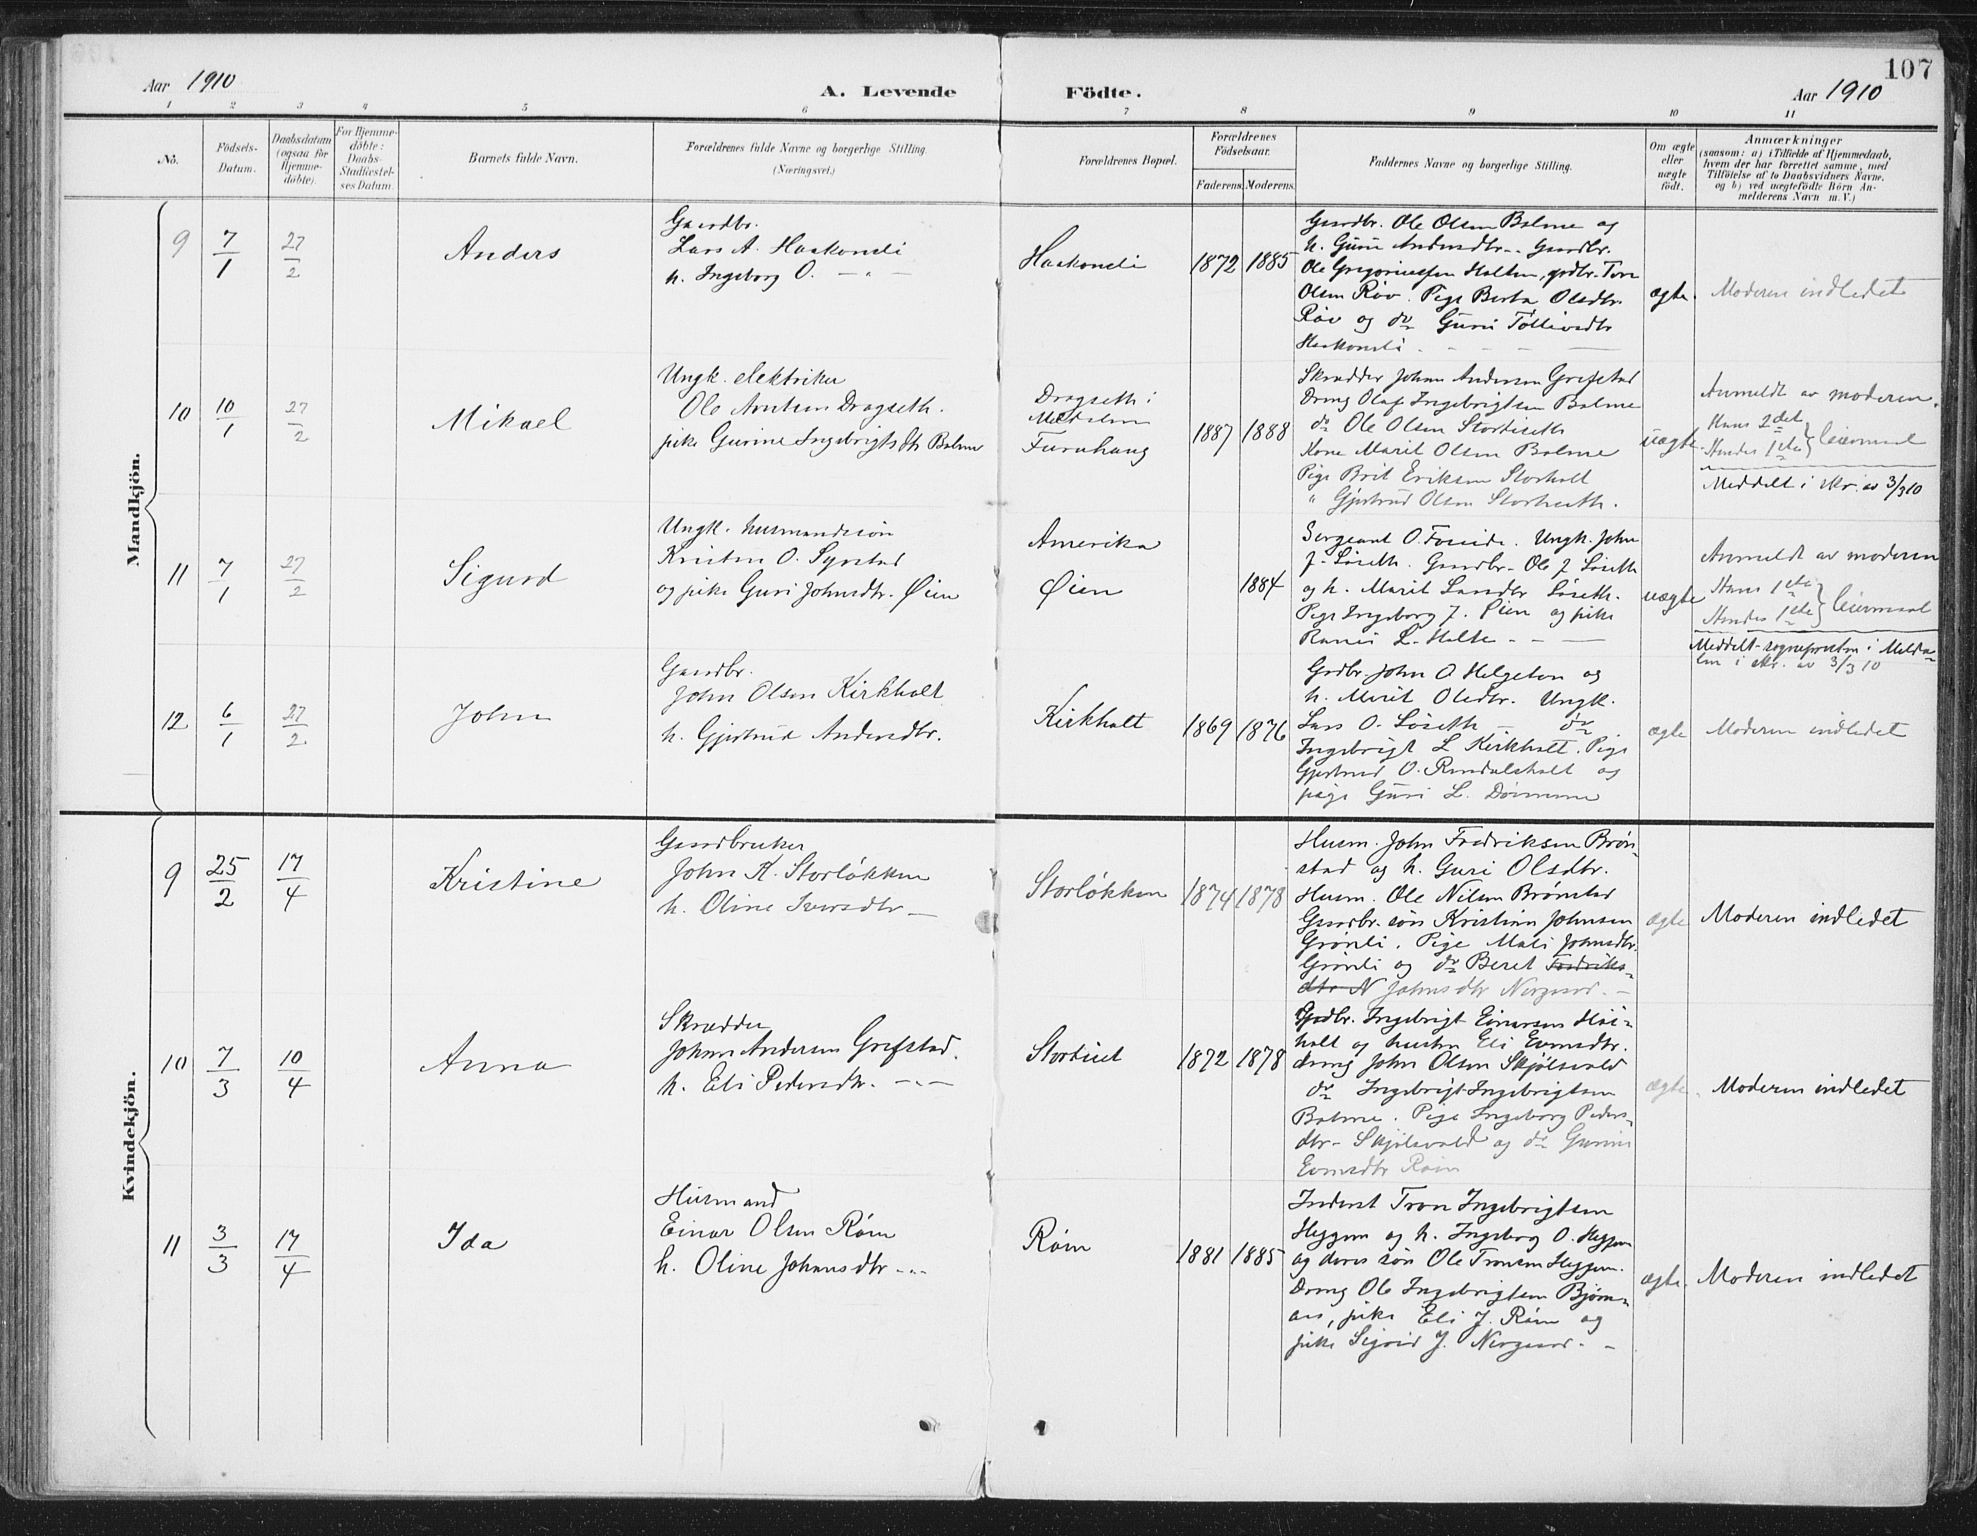 107
Aar 1910
A. Levende
Födte.
Aar 1910
1 2 3 4 5 6 7 8 9 10 11
No.
Födsels-
Datum.
Daabsdatum
(ogsaa for
Hjemme-
döbte).
For Hjemme-
döbte:
Daabs-
Stadfæstel-
ses Datum.
Barnets fulde Navn.
Forældrenes fulde Navne og borgerlige Stilling.
(Næringsvei.)
Forældrenes Bopæl.
Forældrenes
Födselsaar.
Faderens. Moderens.
Faddernes Navne og borgerlige Stilling.
Om ægte
eller
uægte
født.
Anmærkninger
(saasom: a) i Tilfælde af Hjemmedaab,
hvem der har forrettet samme, med
Tilföielse af to Daabsvidners Navne,
og b) ved uægtefödte Börn An-
melderens Navn m. V.)
Mandkjön.
9
7/1
27/2
Anders
Gaardbr.
Lars A. Haakonsli
h. Ingeborg O. — " —
Haakonsli
1872
1885
Gaardbr. Ole Olsen Bolme og
h. Guru Andersdtr. Gaardbr.
Ole Gregoriussen Holten, grdbr. Tore
Olsen Röv. Pige Berta Olsdtr.
Röv og do Guri Tollivsdtr
Haakonsli
ægte.
Moderen indledet
10
10/1
27/2
Mikael
Ungk. elektriker
Ole Arntsen Dragseth.
pike Gurine Ingebrigtsdtr Bolme
Dragseth i
Meldalen
Furuhaug
1887
1888
Skrædder Johan Andersen Grefstad
Dreng Olaf Ingebrigtsen Bolme
do Ole Olsen Stortiseth
Kone Marit Olsen Bolme
Pige Brit Eriksen Storholt
" Gjertrud Olsen Stortiseth.
uægte
Anmeldt av moderen.
Hans 2det
Hendes 1ste } leiermaal
Meddelt i skr. av 3/3 10
11
7/1
27/2
Sigurd
Ungk. husmandssön
Kristen O. Syrstad
og pike Guri Johnsdtr. Øien
Amerika
Øien
1884
Sergeant O. Foseide. Ungk. John
J. Löseth. Gaardbr. Ole J Löseth
og h. Marit Larsdtr Löseth.
Pige Ingeborg J. Øien og pike
L. Holte
uægte
Anmeldt av moderen
Hans 1ste
Hendes 1ste } leiermaal
Meddelt sognepresten i Melda-
len i skr. av 3/3 10
12
6/1
27/2
John
Gaardbr.
John Olsen Kirkholt
h. Gjertrud Andersdtr.
Kirkholt
1869
1876
Grdbr. John O Helgeton og
h. Marit Olsdtr. Ungk.
Lars O. Löseth — do
Ingebrigt L Kirkholt. Pige
Gjertrud O. Rindalsholt og
pige Guri L. Dönnum
ægte
Moderen indledet
Kvindekjön.
9
25/2
17/4
Kristine
Gaardbruker
John K. Storløkken
h. Oline Iversdtr —
Storløkken
1874
1878
Husm. John Fredriksen Brøn-
stad og h. Guri Olsdtr.
Husm. Ole Nilsen Brønstad
Gaardbr. søn Kristian Johnsen
Grønli. Pige Mali Johnsdtr.
Grønli og do Beret Fredriks-
dtr N Johnsdtr Nergaard. —
ægte
Moderen indledet
10
7/3
10/4
Anna
Skrædder
Johan Andersen Grefstad.
h. Eli Pedersdtr. — " —
Stortiset
1872
1878
Grdbr. Ingebrigt Einarsen Höi-
holt og hustru Eli Evensdtr.
dreng John Olsen Skjølsvold
do Ingebrigt Ingebrigtsen
Bolme. Pige Ingeborg Peders-
dtr. Skjølsvold og do Gurine
Evensdtr Röen
ægte.
Moderen indledet
11
3/3
17/4
Ida
Husmand
Einar Olsen Røen
h. Oline Johnsdtr — " —
Røen
1881
1885
Inderst Tron Ingebrigtsen
Heggem og h. Ingeborg O. Heggem
og deres søn Ole Tronsen Heggem.
Dreng Ole Ingebrigtsen Bjørn-
aas, pike Eli J. Røen og
pike Sigrid J. Nergaard. —
ægte.
Moderen indledet